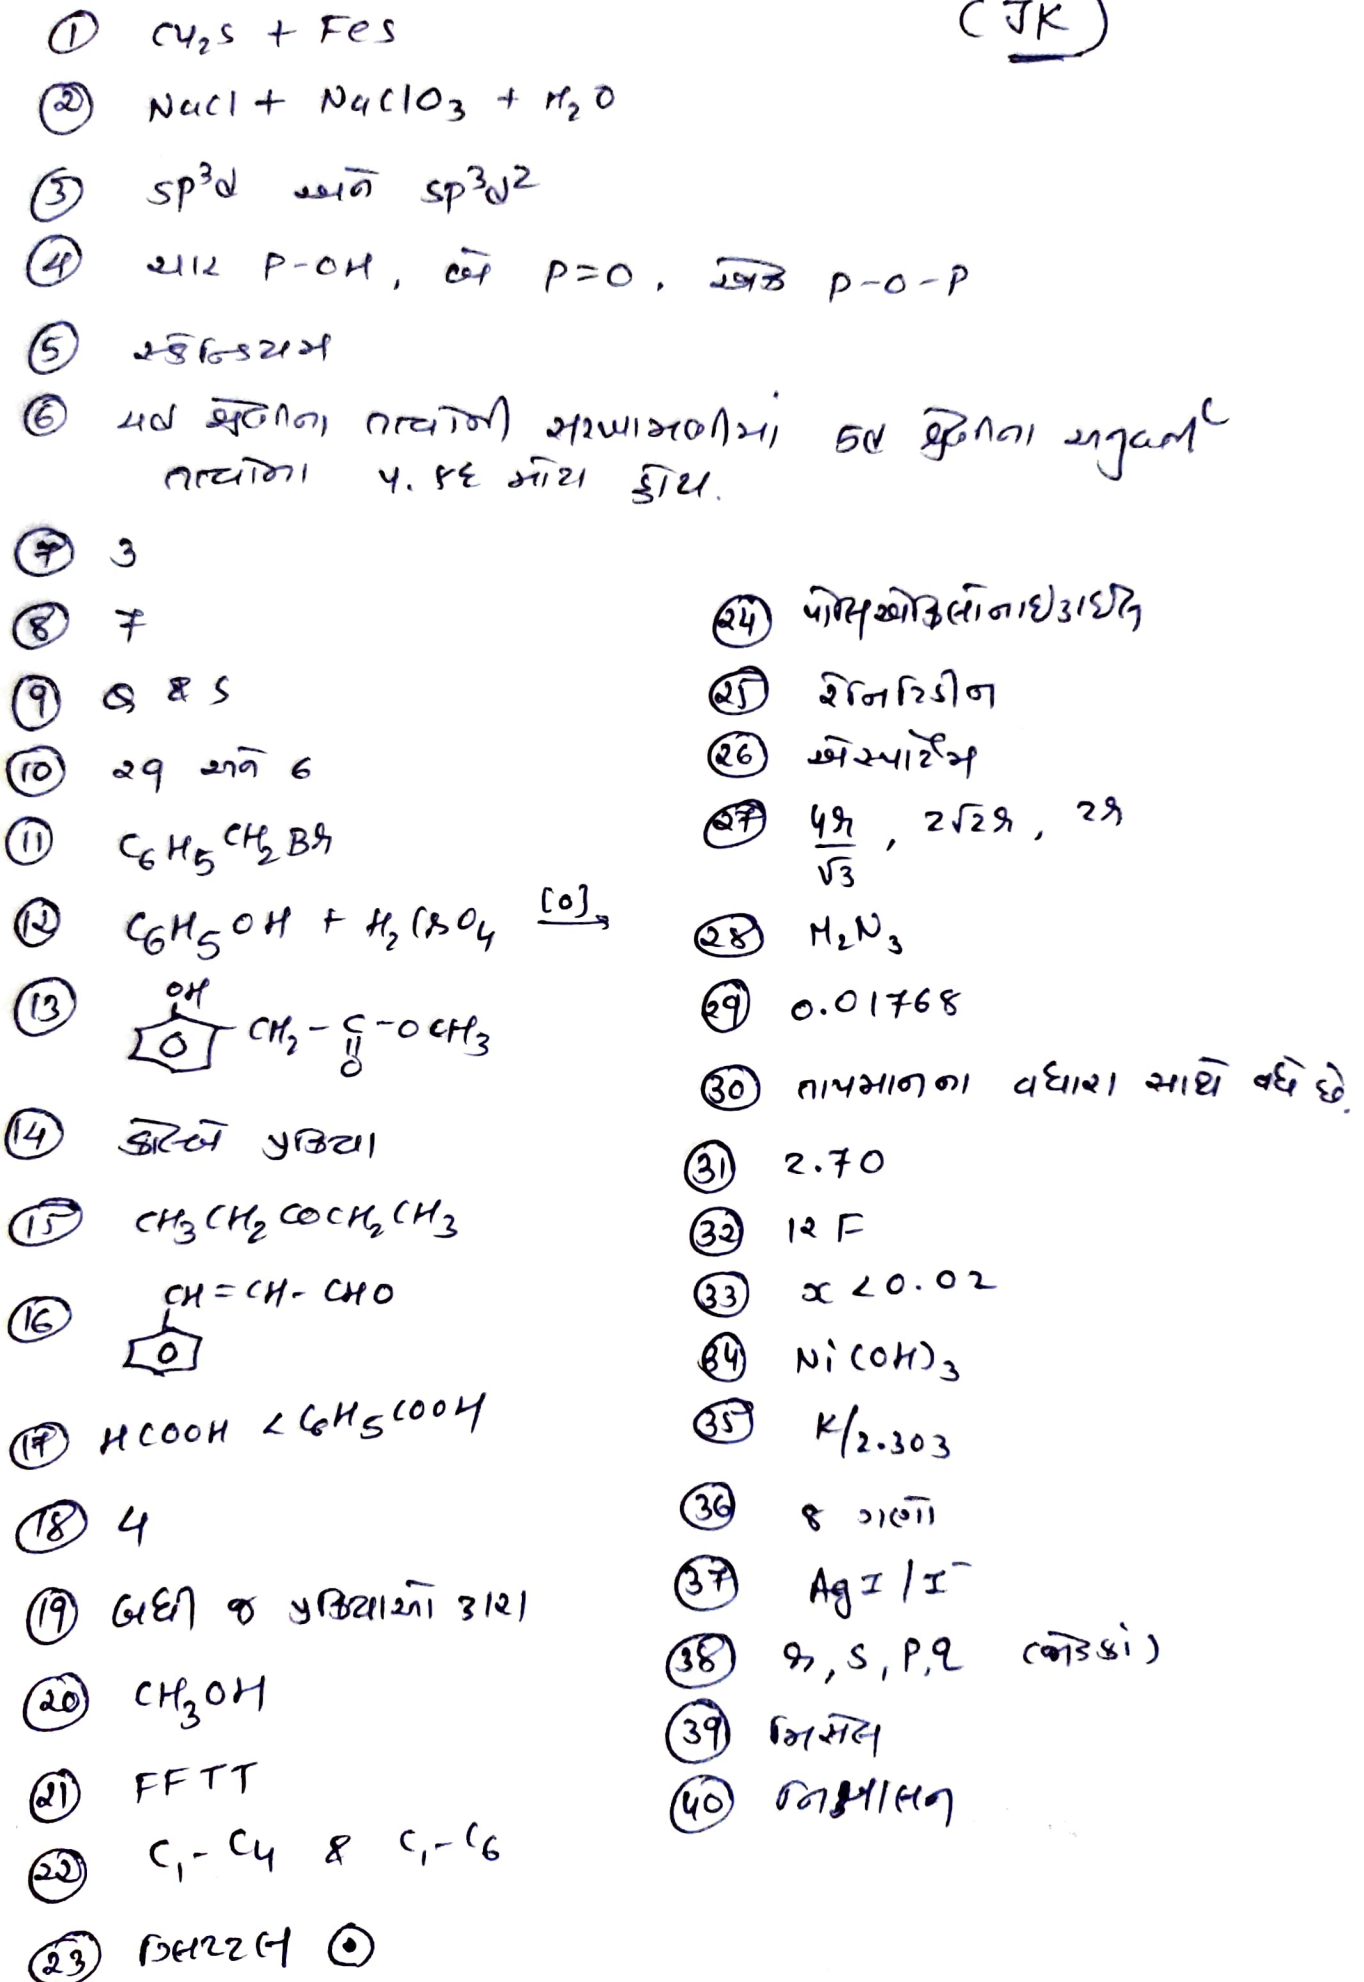 (JK)
① Cu₂S + FeS
② NaCl + NaClO₃ + H₂O
③ sp³d અને sp³d²
④ ચાર P-OH, બે P=O, એક P-O-P
⑤ સ્કેન્ડિયમ
⑥ 4d શ્રેણીના તત્વોની સરખામણીમાં 5d શ્રેણીના અનુવર્તી
તત્વોના પ. કદ મોટા હોય.
⑦ 3
⑧ 7
⑨ Q & S
⑩ 29 અને 6
⑪ C₆H₅CH₂Br
⑫ C₆H₅OH + H₂CrO₄ [O]→
⑬ OH
CH₂-C-OCH₃
O
⑭ કોલ્બે પ્રક્રિયા
⑮ CH₃CH₂COCH₂CH₃
⑯ CH=CH-CHO
⑰ HCOOH < C₆H₅COOH
⑱ 4
⑲ બધી જ પ્રક્રિયાઓ દ્વારા
⑳ CH₃OH
㉑ FFTT
㉒ C₁-C₄ & C₁-C₆
㉓
㉔
㉕ રેનિટિડીન
㉖ એસ્પાર્ટેમ
㉗ 4r/√3, 2√2r, 2r
㉘ M₂N₃
㉙ 0.01768
㉚ તાપમાનના વધારા સાથે વધે છે.
㉛ 2.70
㉜ 12 F
㉝ x < 0.02
㉞ Ni(OH)₃
㉟ K/2.303
㊱ 8 ગણો
㊲ AgI/I⁻
㊳ r, s, p, q (જોડકાં)
㊴ મિસેલ
㊵ નિક્ષાલન